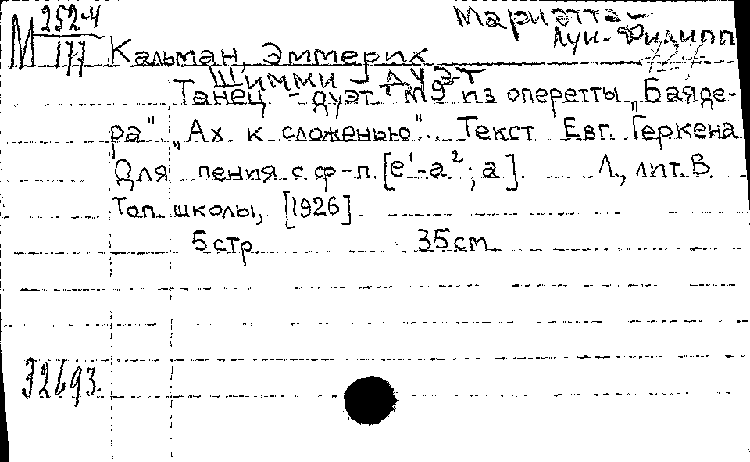 М 252-4
177
Мариэтта-
Луи-Филипп
Кальман, Эммерих
Шимми - дуэт
Танец - дуэт №9 из оперетты „Баяде-
ра" „Ах к сложенью". Текст Евг. Геркена
Для пения с ф-п. [e¹-a²; a]. Л., лит. В.
Топ. школы, [1926]
5 стр 35 cm
32693.